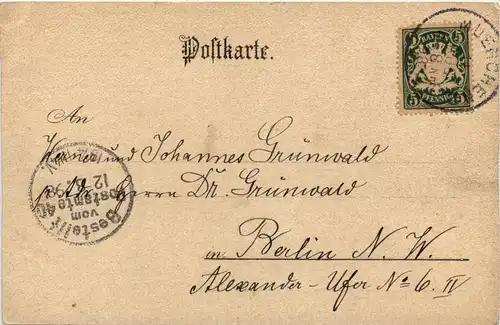 Postkarte.
BAYERN
5 5
PFENNIG
5 5
MUENCHE
An
Werner und Johannes Grünwald
p. Adr. Herrn Dr. Grünwald
in Berlin N. W.
Alexander-Ufer No 6. IV
Bestellt
vom
Postamte 40
12